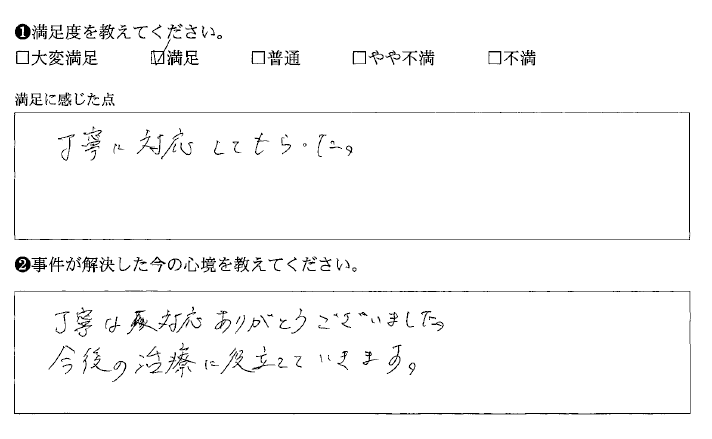 ❶満足度を教えてください。
□大変満足 ☑満足 □普通 □やや不満 □不満
満足に感じた点
丁寧に対応してもらった。
❷事件が解決した今の心境を教えてください。
丁寧な対応ありがとうございました。
今後の治療に役立てていきます。